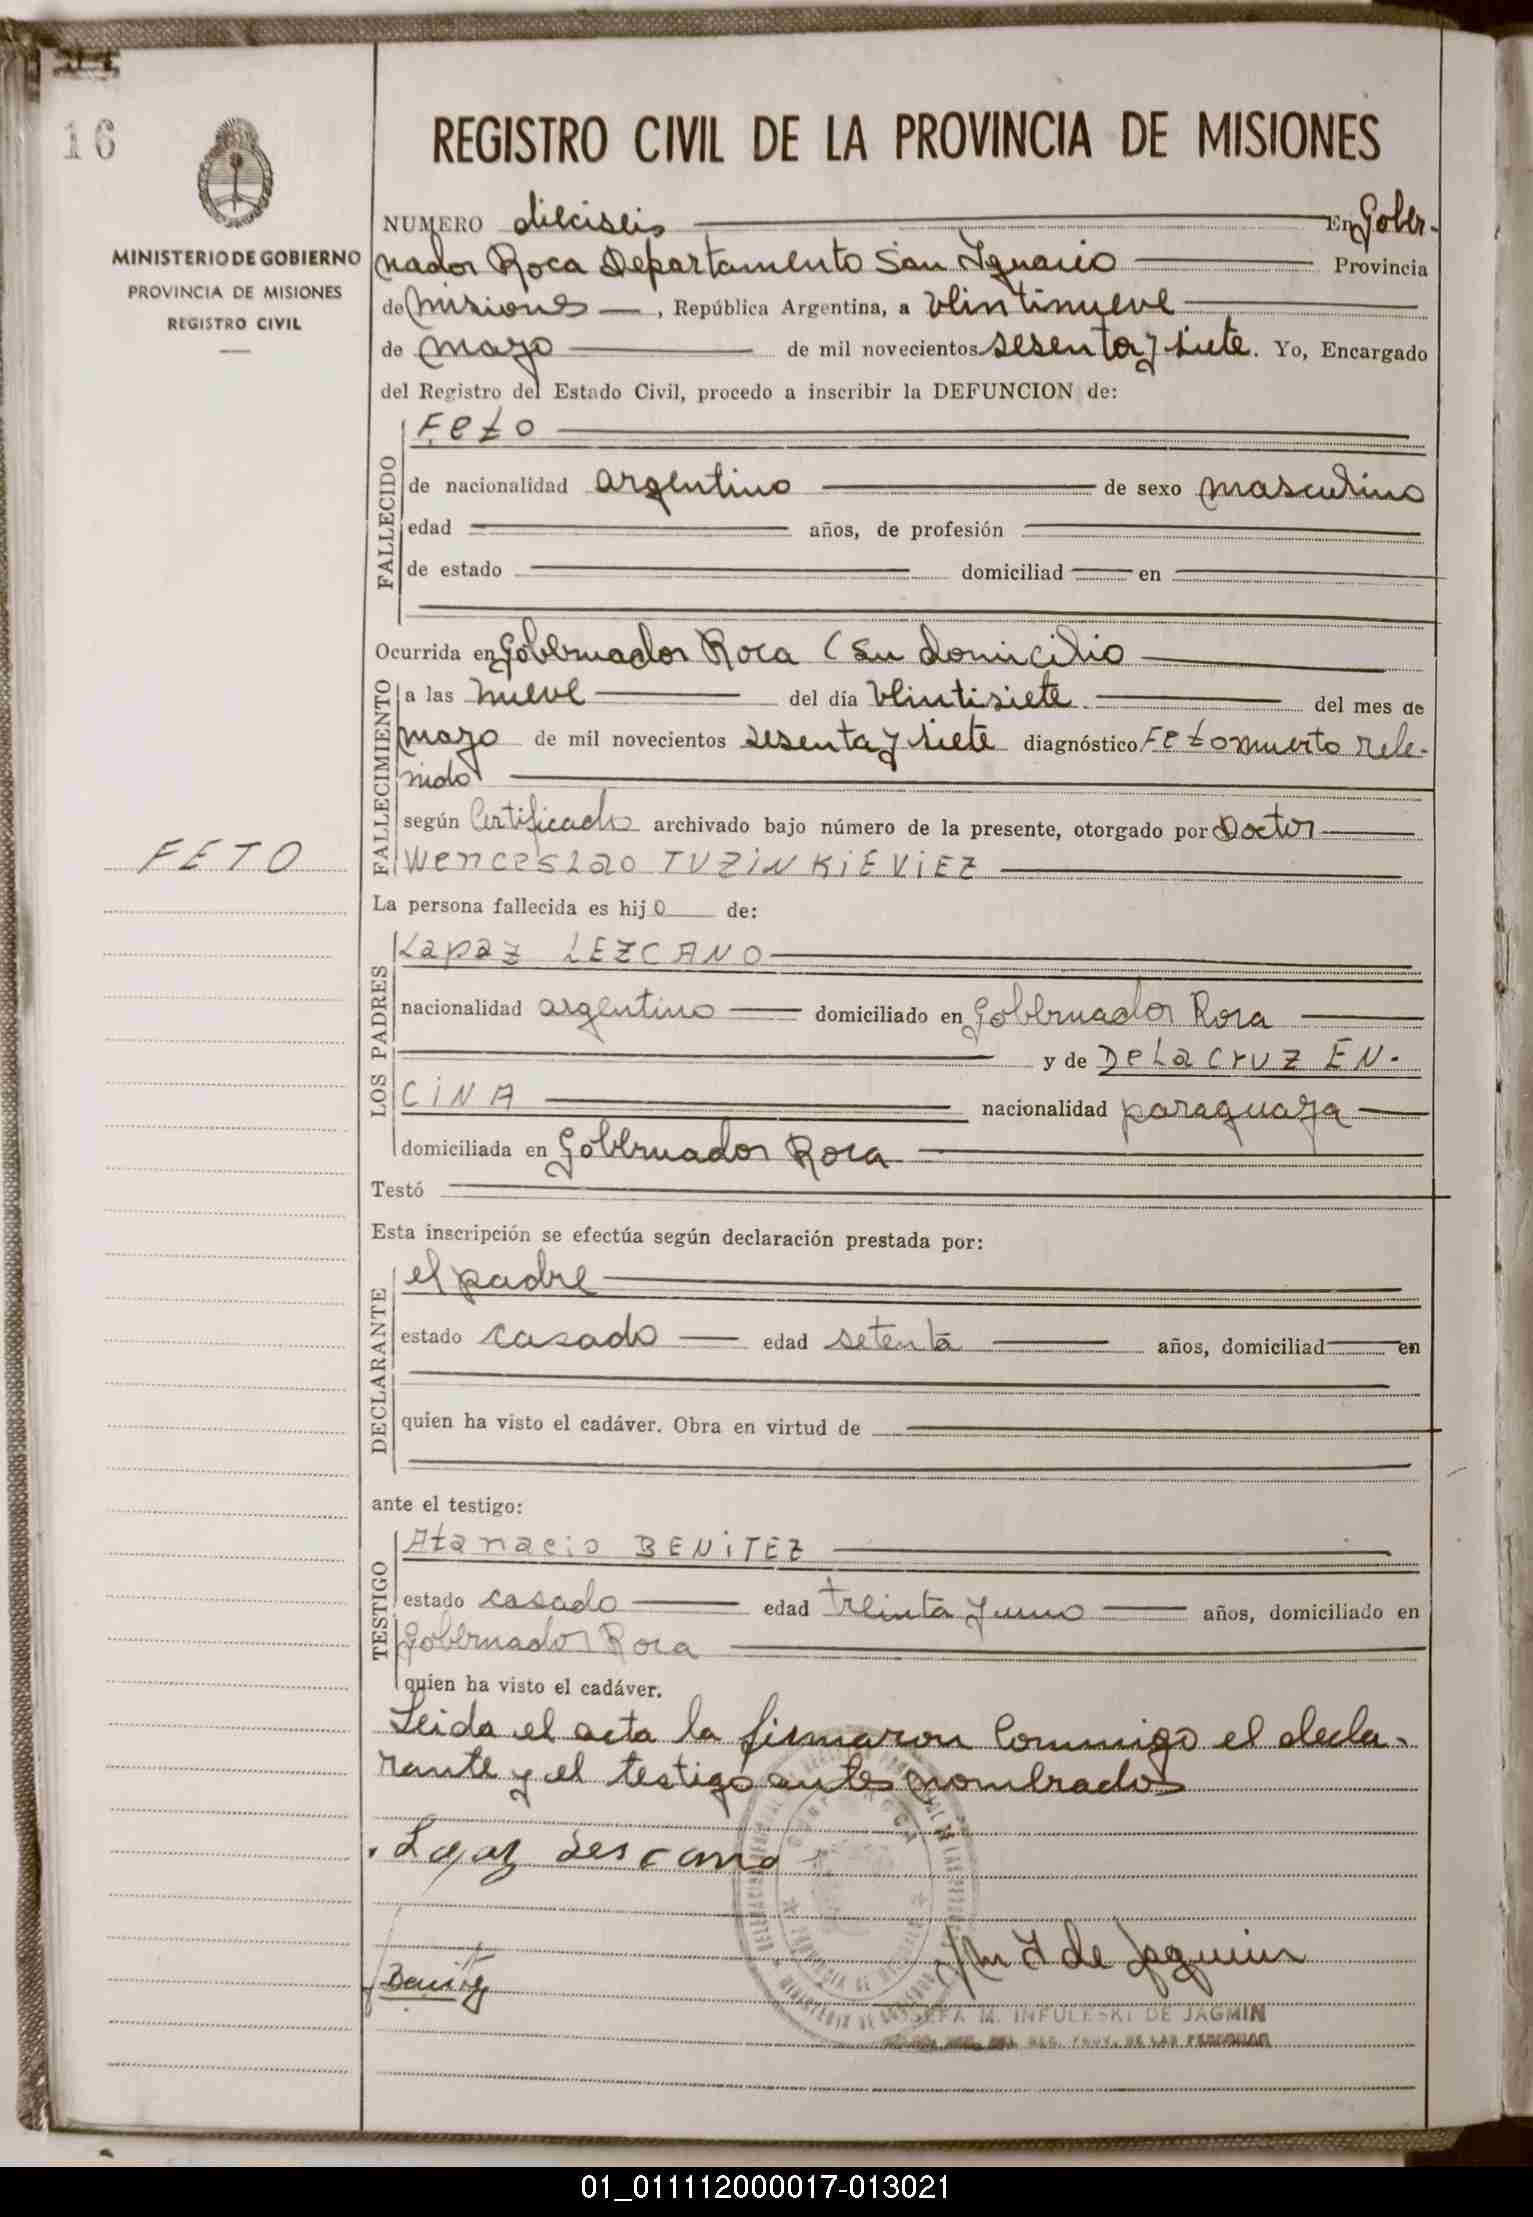 16
MINISTERIO DE GOBIERNO
PROVINCIA DE MISIONES
REGISTRO CIVIL
FETO
REGISTRO CIVIL DE LA PROVINCIA DE MISIONES
NUMERO dieciseis En Gober-
nador Roca Departamento San Ignacio Provincia
de Misiones, República Argentina, a veintinueve
de mayo de mil novecientos sesenta y siete. Yo, Encargado
del Registro del Estado Civil, procedo a inscribir la DEFUNCION de:
FALLECIDO
Feto
de nacionalidad argentino de sexo masculino
edad años, de profesión
de estado domiciliad en
Ocurrida en Gobernador Roca (su domicilio
FALLECIMIENTO
a las nueve del día veintisiete del mes de
mayo de mil novecientos sesenta y siete diagnóstico Feto muerto rete-
nido
según Certificado archivado bajo número de la presente, otorgado por Doctor
Wenceslao TUZINKIEVIEZ
La persona fallecida es hijo de:
LOS PADRES
Lapaz LEZCANO
nacionalidad argentino domiciliado en Gobernador Roca
y de De La Cruz EN-
CINA nacionalidad paraguaya
domiciliada en Gobernador Roca
Testó
Esta inscripción se efectúa según declaración prestada por:
DECLARANTE
el padre
estado casado edad setenta años, domiciliad en
quien ha visto el cadáver. Obra en virtud de
ante el testigo:
TESTIGO
Atanacio BENITEZ
estado casado edad treinta y uno años, domiciliado en
Gobernador Roca
quien ha visto el cadáver.
Leida el acta la firmaron conmigo el decla-
rante y el testigo antes nombrados
Lapaz Lescano
Benitez
de Jagmin
JOSEFA M. INFULESKI DE JAGMIN
REG. PROV. DE LAS PERSONAS
01_011112000017-013021